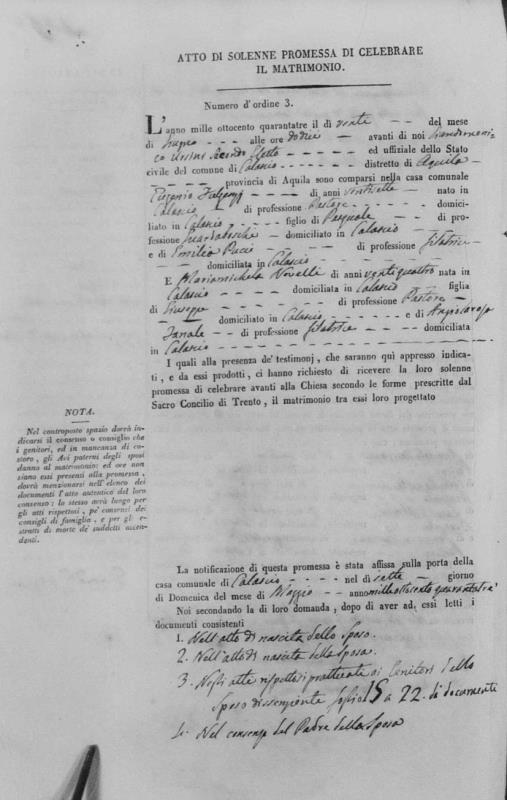 ATTO DI SOLENNE PROMESSA DI CELEBRARE
IL MATRIMONIO.
Numero d'ordine 3.
L'anno mille ottocento quarantatre il dì venti — — del mese
di Giugno — alle ore dodici — avanti di noi
Secondo Eletto — — — — — ed uffiziale dello Stato
civile del comune di Calascio - - - - - - distretto di Aquila -
— — — — provincia di Aquila sono comparsi nella casa comunale
— — — — — di anni ventisette — nato in
Calascio — di professione Pastore — — — — domici-
liato in Calascio — — figlio di Pasquale — — di pro-
fessione — domiciliato in Calascio — —
e di Emilia — — — — — — di professione filatrice —
— — domiciliata in Calascio — — — — — —
E Mariamichela Novelli di anni ventiquattro nata in
Calascio — — — — domiciliata in Calascio — — figlia
di Giuseppe — — — — — di professione Pastore —
— — domiciliato in Calascio — — — — e di
— — di professione filatrice — — — — domiciliata
in Calascio — — — — — —
I quali alla presenza de' testimonj, che saranno quì appresso indica-
ti, e da essi prodotti, ci hanno richiesto di ricevere la loro solenne
promessa di celebrare avanti alla Chiesa secondo le forme prescritte dal
Sacro Concilio di Trento, il matrimonio tra essi loro progettato
NOTA.
Nel contraposto spazio dovrà in-
dicarsi il consenso o consiglio che
i genitori, ed in mancanza di co-
storo, gli Avi paterni degli sposi
danno al matrimonio: ed ove non
siano essi presenti alla promessa,
dovrà menzionarsi nell'elenco dei
documenti l'atto autentico del loro
consenso: lo stesso avrà luogo per
gli atti rispettosi, pe' consensi dei
consigli di famiglia, e per gli e-
stratti di morte de' suddetti ascen-
denti.
La notificazione di questa promessa è stata affissa sulla porta della
casa comunale di Calascio - - - - nel dì sette — giorno
di Domenica del mese di Maggio — — anno mille ottocento quarantatre
Noi secondando la di loro domanda, dopo di aver ad essi letti i
documenti consistenti
1. Nell'atto di nascita dello Sposo.
2. Nell'atto di nascita della Sposa.
3. Negli atti rispettosi praticati ai Genitori dello
Sposo dissenziente foglio 15 a 22. di documenti
4. Nel consenso del Padre della Sposa